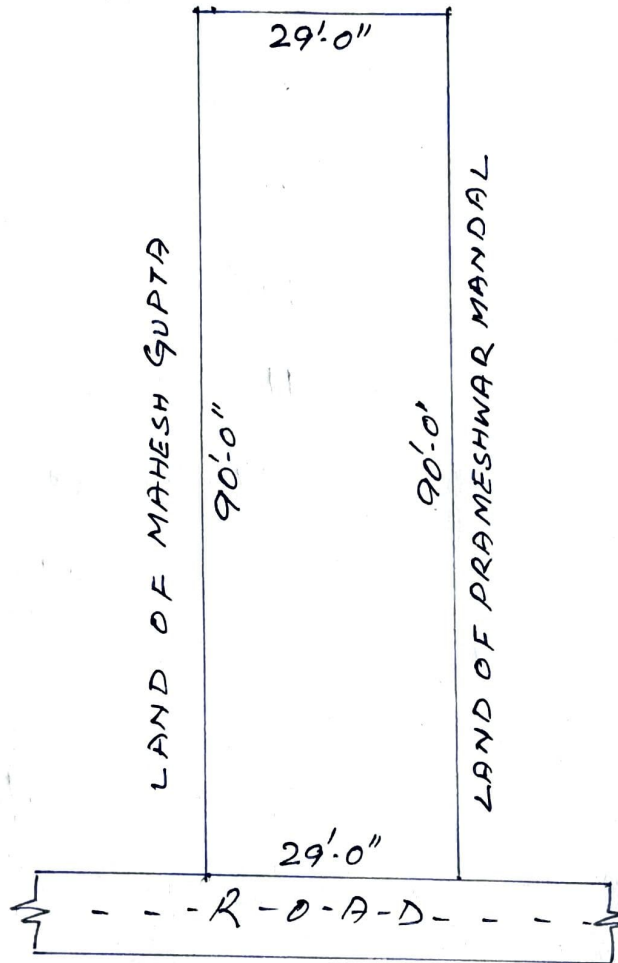 29'-0"
LAND OF MAHESH GUPTA
90'-0"
90'-0'
LAND OF PRAMESHWAR MANDAL
29'-0"
- - - R - O - A - D - - - - -